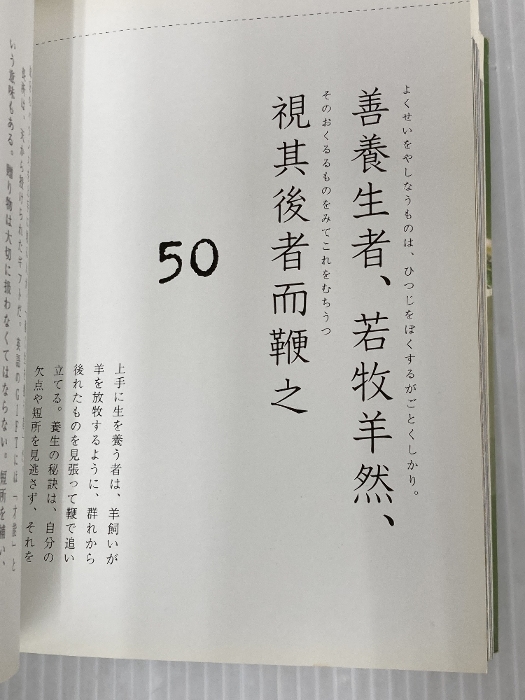 よくせいをやしなうものは、ひつじをぼくするがごとくしかり。
善養生者、若牧羊然、
そのおくるるものをみてこれをむちうつ
視其後者而鞭之
50
上手に生を養う者は、羊飼いが
羊を放牧するように、群れから
後れたものを見張って鞭で追い
立てる。養生の秘訣は、自分の
欠点や短所を見逃さず、それを
いう意味もある。贈り物は大切に扱わなくてはならない。短所を補い、